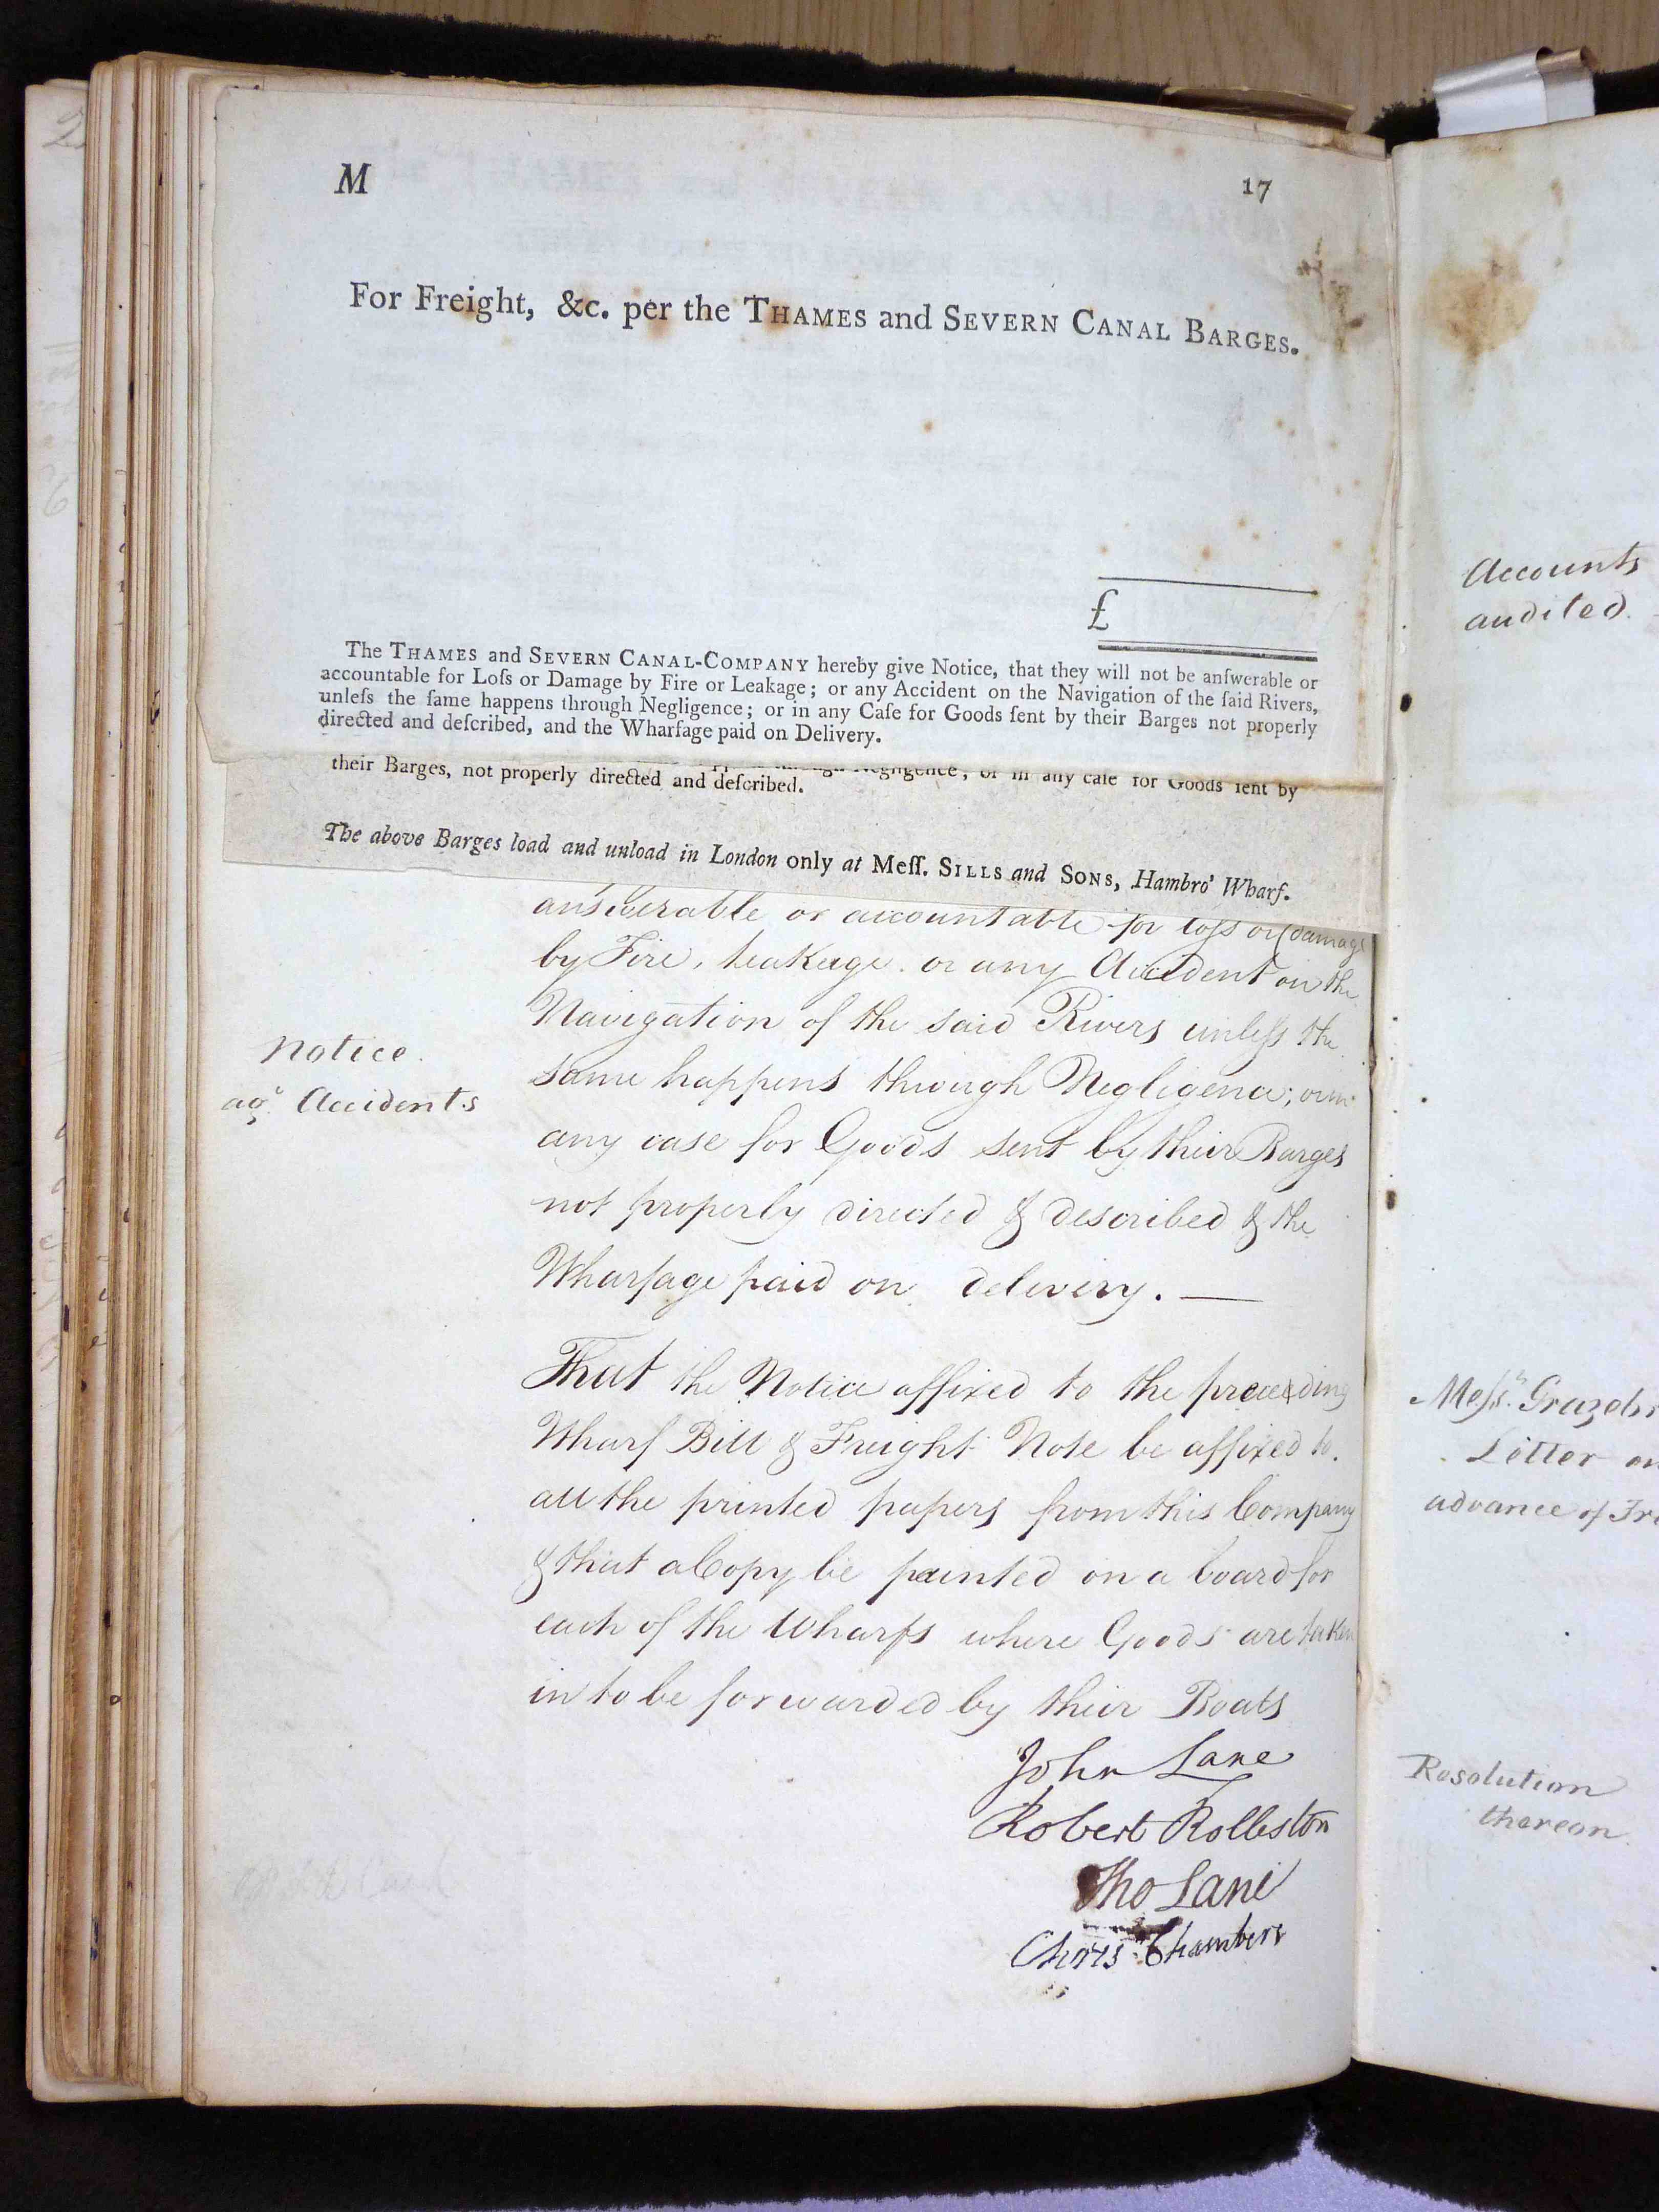 M 17
For Freight, &c. per the THAMES and SEVERN CANAL BARGES.
£
The THAMES and SEVERN CANAL-COMPANY hereby give Notice, that they will not be anſwerable or
accountable for Loſs or Damage by Fire or Leakage; or any Accident on the Navigation of the ſaid Rivers,
unleſs the ſame happens through Negligence; or in any Caſe for Goods ſent by their Barges not properly
directed and deſcribed, and the Wharfage paid on Delivery.
Negligence; or in any caſe for Goods ſent by
their Barges, not properly directed and deſcribed.
The above Barges load and unload in London only at Meſſ. SILLS and SONS, Hambro' Wharf.
answerable or accountable for loſs or damage
by Fire, leakage or any Accident on the
Navigation of the said Rivers unleſs the
same happens through Negligence; or in
any case for Goods sent by their Barges
not properly directed & described & the
Wharfage paid on delivery. —
Notice
agt Accidents
That the Notice affixed to the preceeding
Wharf Bill & Freight Note be affixed to
all the printed papers from this Company
& that a Copy be painted on a board for
each of the Wharfs where Goods are taken
in to be forwarded by their Boats
John Lane
Robert Rolleston
Tho Lane
Chris Chambers
Accounts
audited.
Meſsrs Grazebr
Letter on
advance of Fre
Resolution
thereon